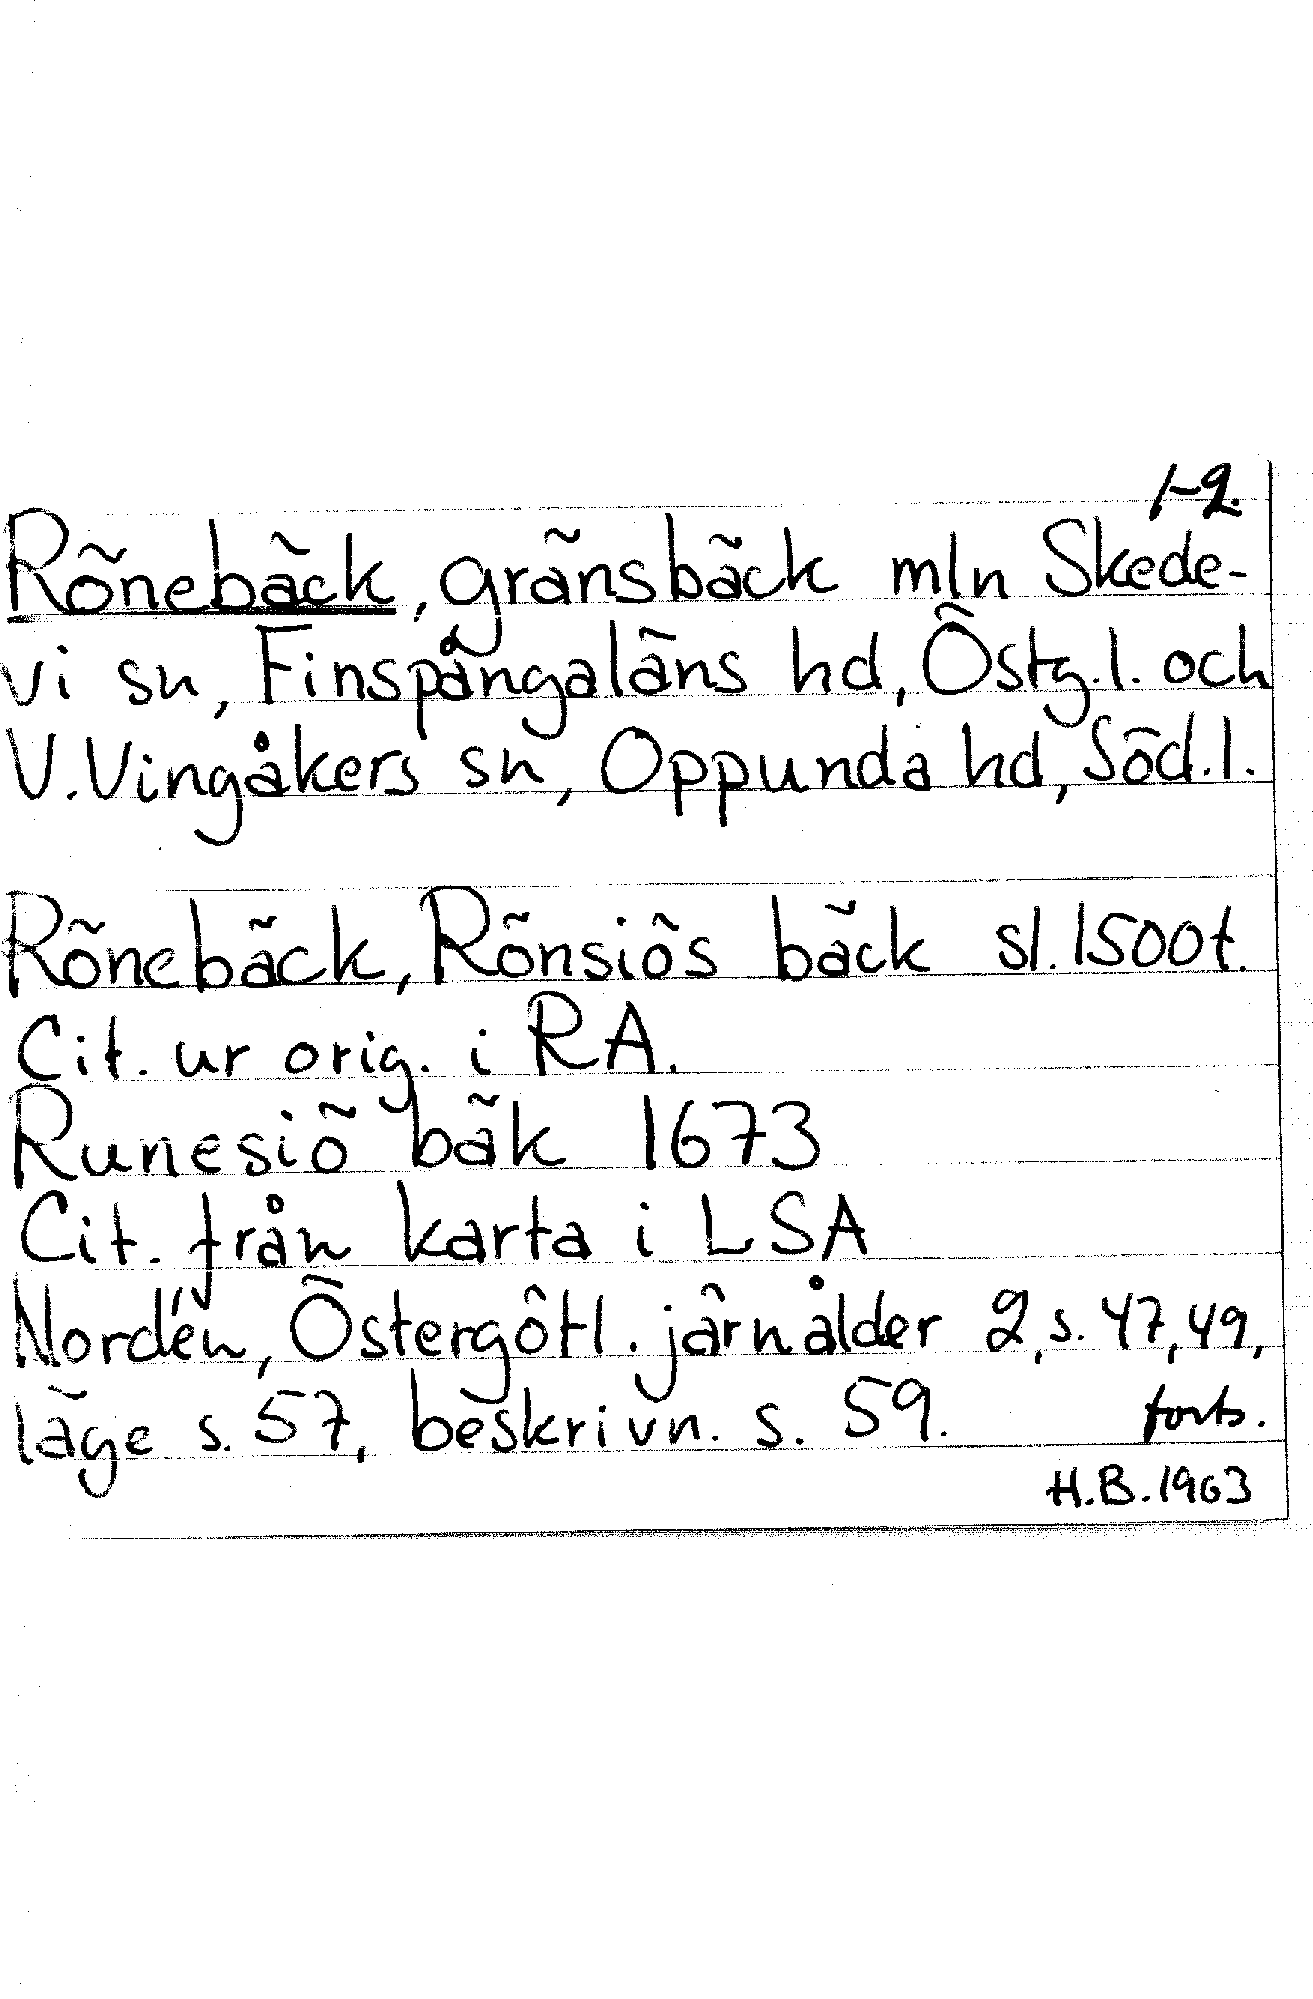 1-2.
Rönebäck, gränsbäck mln Skede-
vi sn, Finspångaläns hd, Östg.l. och
V.Vingåkers sn, Oppunda hd, Söd.l.
Rönebäck, Rönsiös bäck sl. 1500t.
Cit. ur orig. i RA.
Runesiö bäk 1673
Cit. från karta i LSA
Nordén, Östergötl. järnålder 2, s. 47, 49,
läge s. 57, beskrivn. s. 59. forts.
H.B. 1963